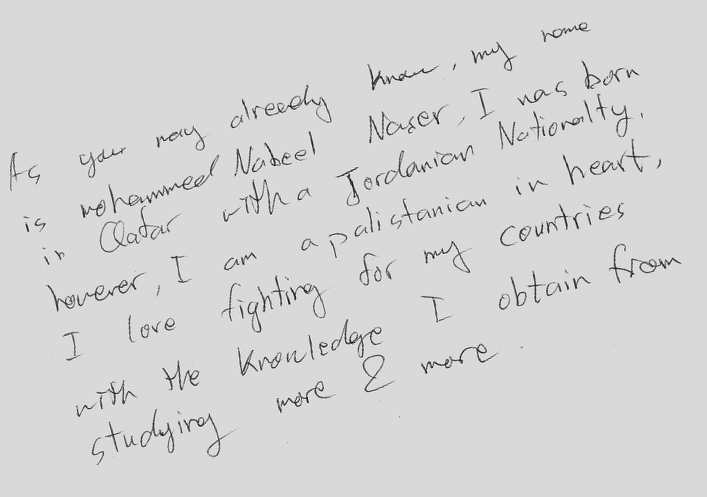 As you may already know, my name
is mohammed Nabeel Naser, I was born
in Qatar with a Jordanian Nationalty,
however, I am a palistanian in heart,
I love fighting for my countries
with the knowledge I obtain from
studying more & more.